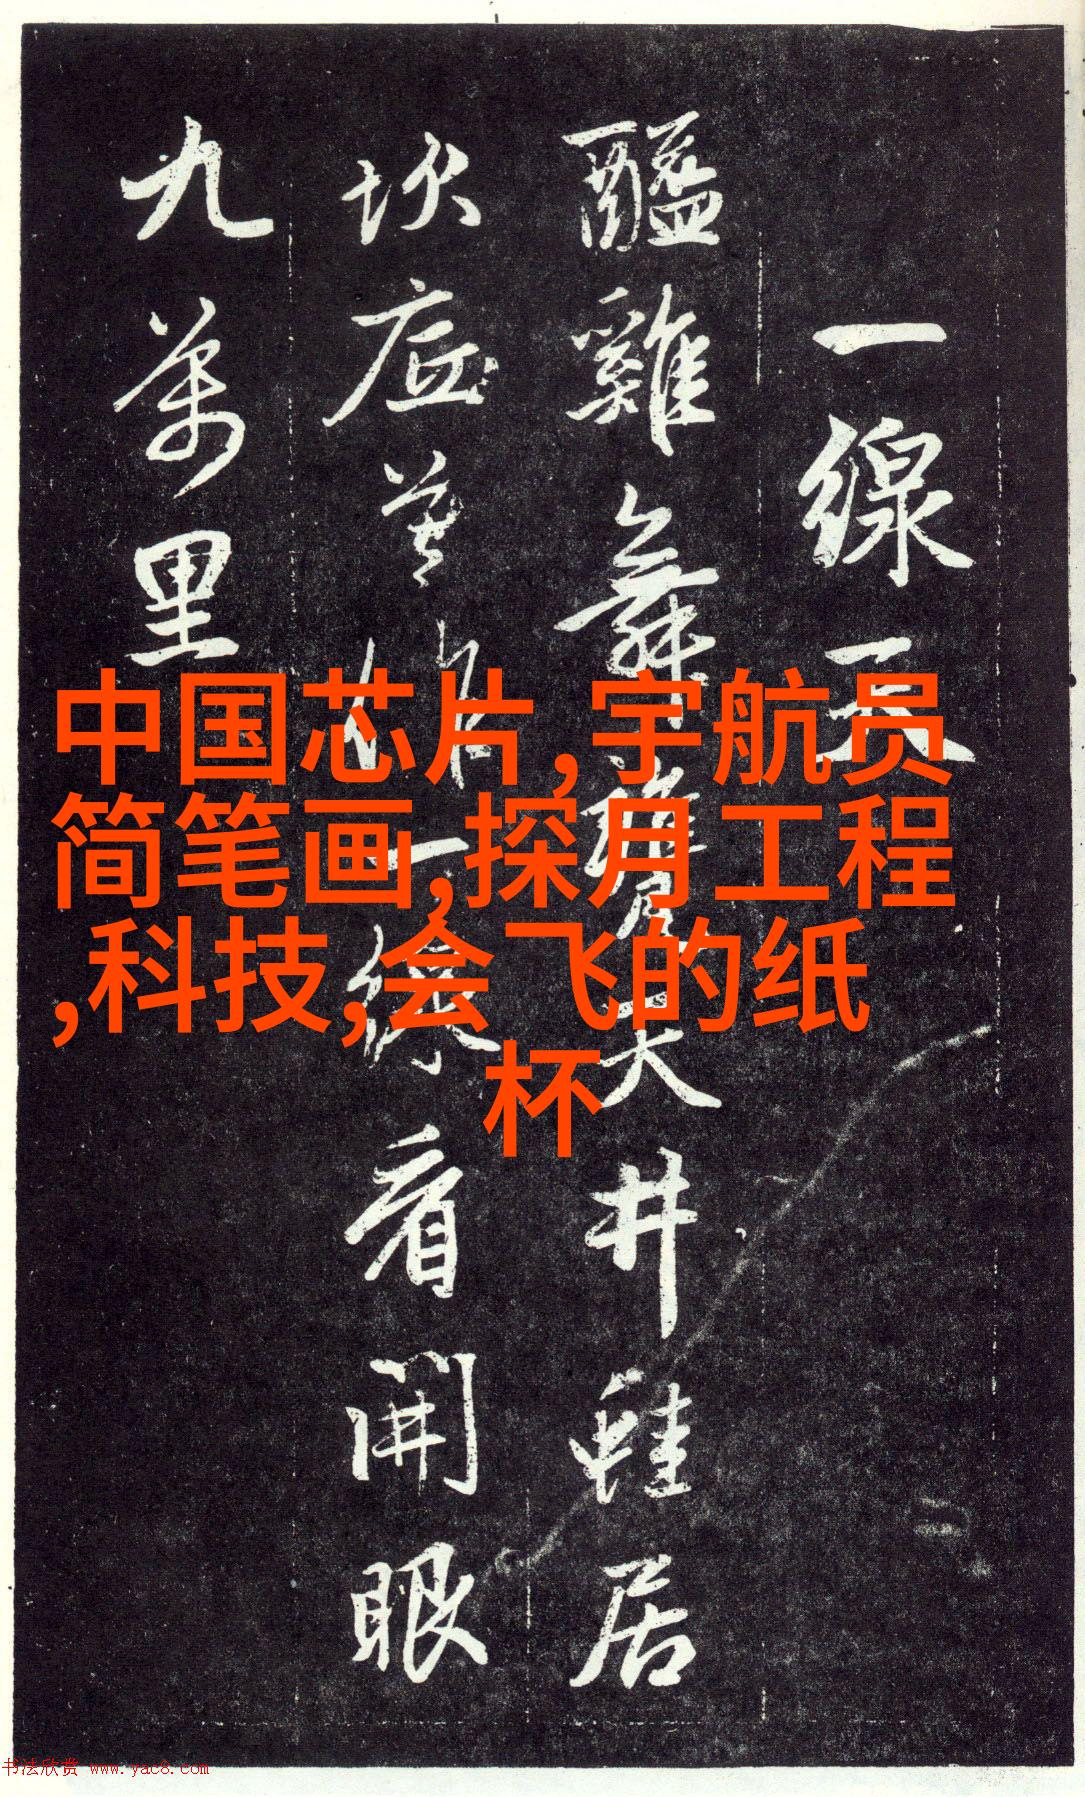 中国芯片,宇航员
简笔画,探月工程
,科技,会飞的纸
杯
一線天
醯雞舞甕天井蛙居
坎底莫作一線看開眼
九萬里
书法欣赏 www.yac8.com